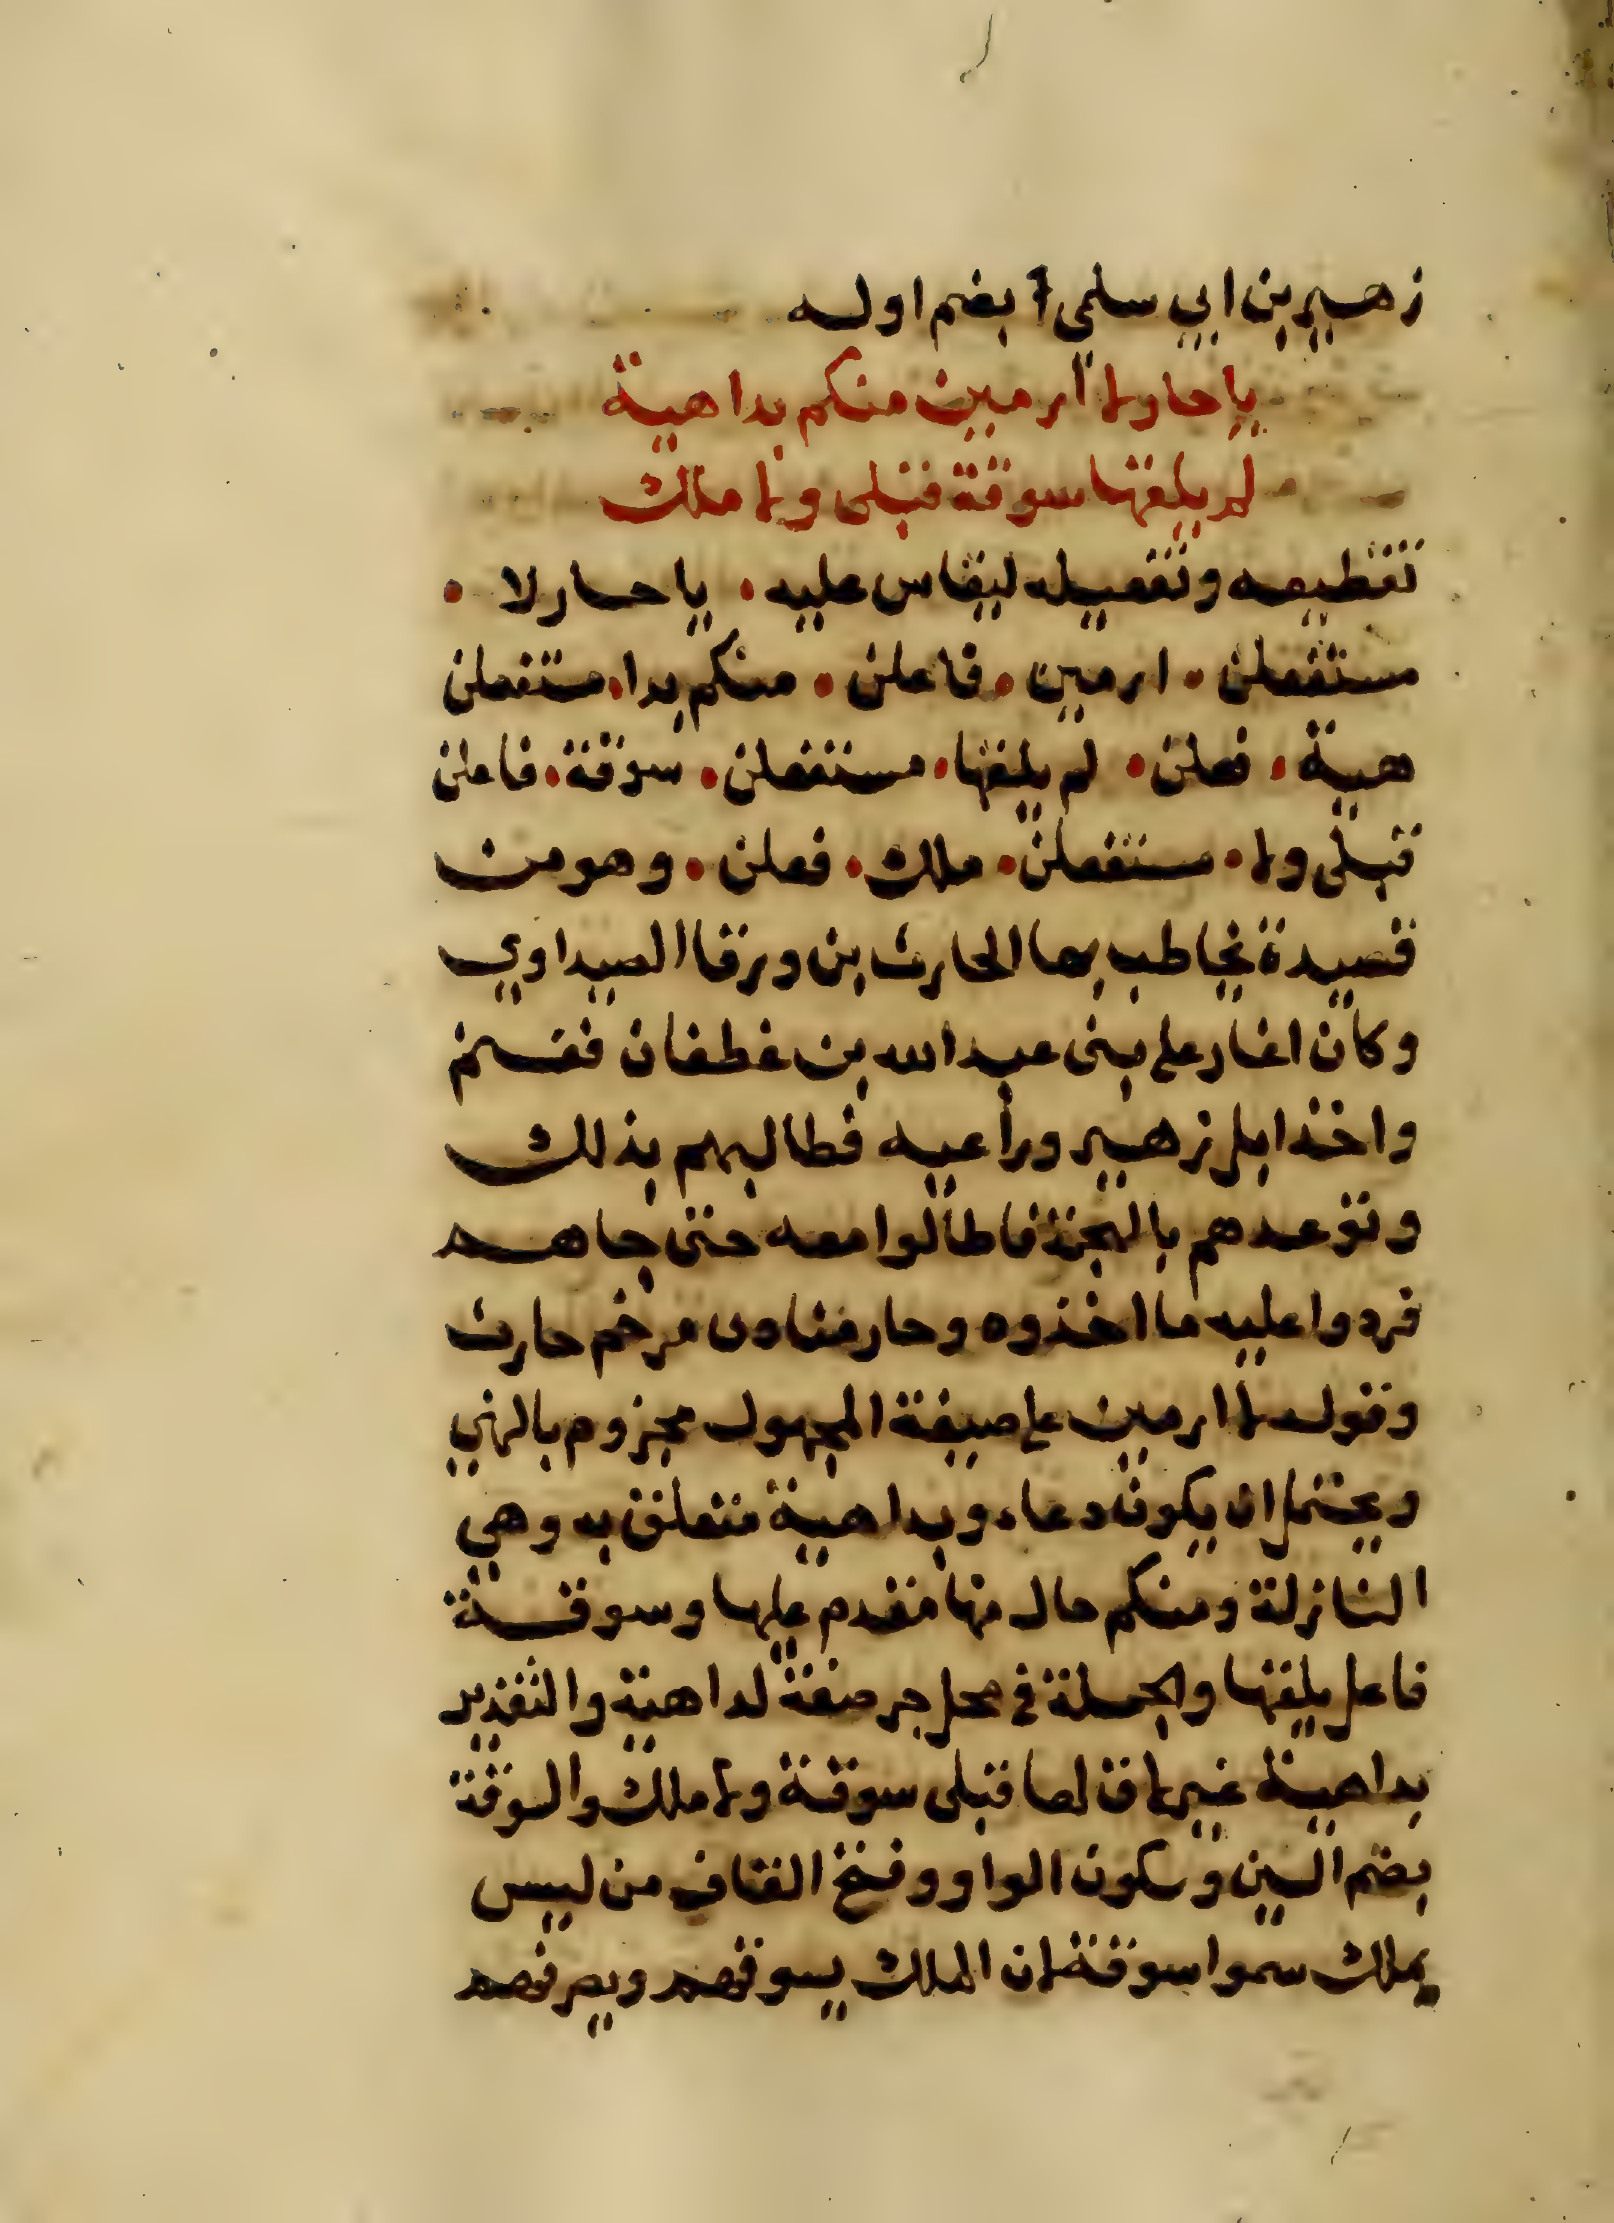 زهير بن ابي سلمى بضم اوله
يا حار لا ارمين منكم بداهية
لم يلقها سوقة قبلى ولا ملك
تقطيعه وتفعيله ليقاس عليه • يا حار لا •
مستفعلن • ارمين • فاعلن • منكم بدا • مستفعلن
هية • فعلن • لم يلقها • مستفعلن • سوقة • فاعلن
قبلى ولا • مستفعلن • ملك • فعلن • وهو من
قصيدة يخاطب بها الحارث بن ورقا الصيداوي
وكان اغار على بنى عبد الله بن غطفان فغنم
واخذ ابل زهير وراعيه فطالبهم بذلك
وتوعدهم بالهجو فاطالوا معه حتى جاهد
فردوا عليه ما اخذوه وحار منادى مرخم حارث
وقوله لا ارمين على صيغة المجهول مجزوم بالنهي
ويحتمل ان يكون دعاء وبداهية متعلق به وهي
النازلة ومنكم حال منها مقدم عليها وسوقة
فاعل يلقها والجملة في محل جر صفة لداهية والتقدير
بداهية غير لاق لها قبلى سوقة ولا ملك والسوقة
بضم السين وسكون الواو وفتح القاف من ليس
بملك سموا سوقة لان الملك يسوقهم ويصرفهم